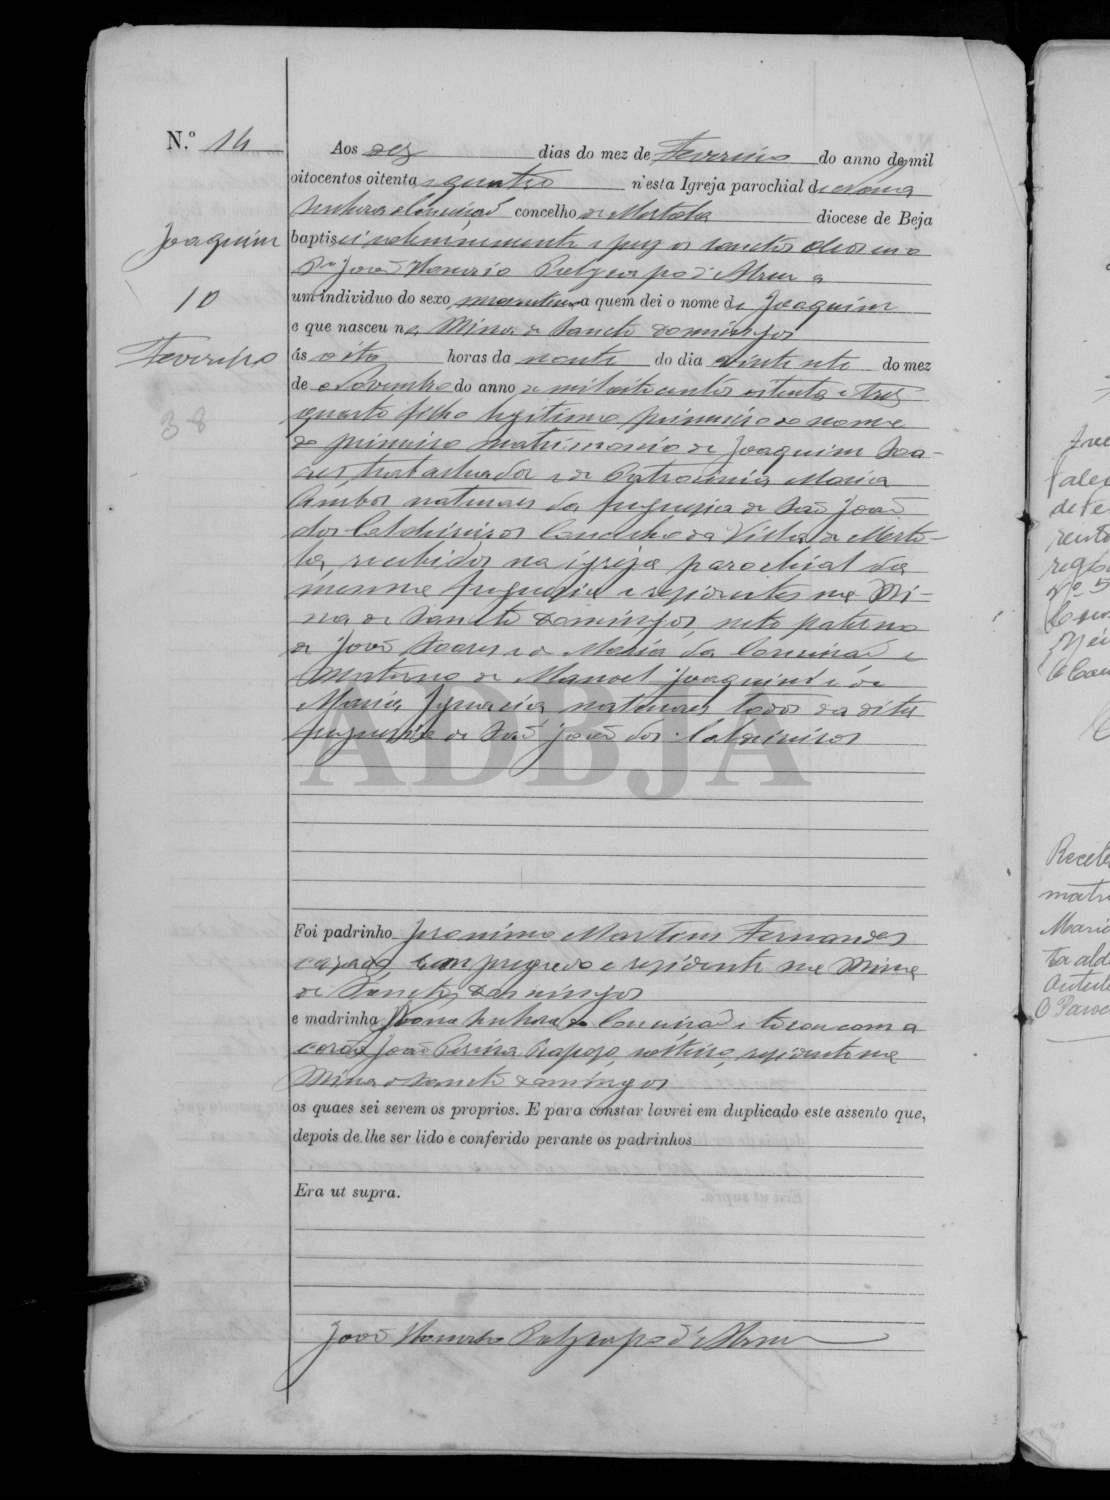 N.º 14
Joaquim
10
Fevereiro
38
Aos dez dias do mez de Fevereiro do anno de mil
oitocentos oitenta e quatro n'esta Igreja parochial de Nossa
Senhora Conceição concelho de Mertola diocese de Beja
baptisei solemnemente e puz os sanctos oleos eu o
João d'Abreu a
um individuo do sexo masculino a quem dei o nome de Joaquim
e que nasceu na Mina de Sancto Domingos
ás oito horas da noute do dia vinte oito do mez
de Novembro do anno de mil oito centos oitenta e trez
quarto filho legitimo primeiro do nome
do primeiro matrimonio de Joaquim Soa-
res, trabalhador e de Patrocinia Maria
ambos naturaes da freguesia de São João
dos Caldeireiros Concelho da Villa de Merto-
la, recebidos na igreja parochial da
mesma freguesia e residentes na Mi-
na de Sancto Domingos, neto paterno
de João Soares e de Maria da Conceição e
Materno de Manoel Joaquim e de
Maria Ignacia, naturaes todos da dita
freguesia de São João dos Caldeireiros
ADBJA
Foi padrinho Jeronimo Martins Fernandes
casado, empregado e residente na Mina
de Sancto Domingos
e madrinha Nossa Senhora da Conceição e tocou com a
corôa João Pereira Raposo, solteiro, residente na
Mina Sancto Domingos
os quaes sei serem os proprios. E para constar lavrei em duplicado este assento que,
depois de lhe ser lido e conferido perante os padrinhos
Era ut supra.
João d'Abreu